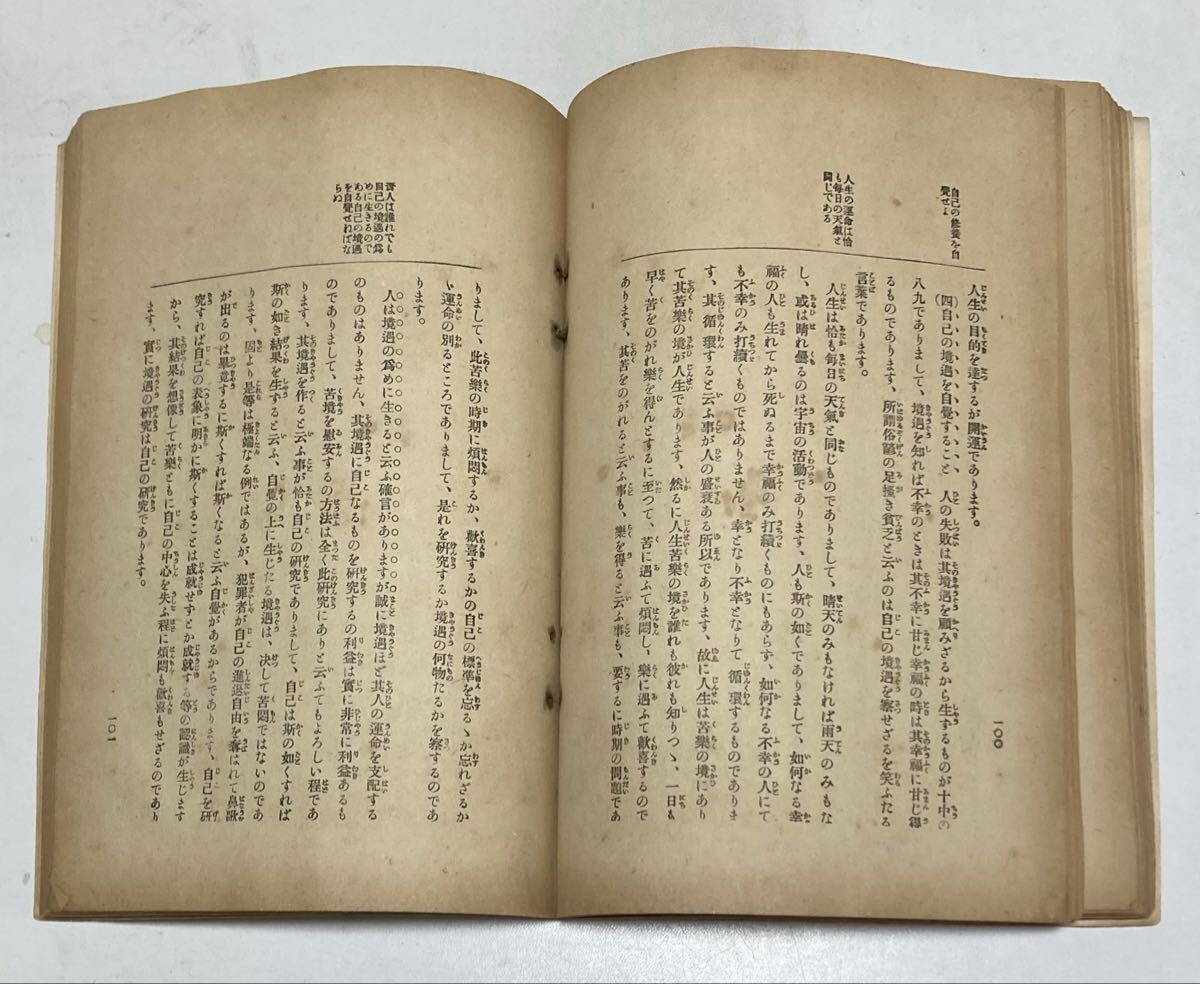 自己の能業を自
覺せよ
人生の運命は恰
も毎日の天氣と
同じである
人生の目的を達するが開運であります。
(四)自己の境遇を自覺すること 人の失敗は其境遇を顧みざるから生ずるものが十中の
八九でありまして、境遇を知れば不幸のときは其不幸に甘じ幸福の時は其幸福に甘じ得
るものであります。所謂俗諺の足掻き貧乏と云ふのは自己の境遇を察せざるを笑ふたる
言葉であります。
人生は恰も毎日の天氣と同じものでありまして、晴天のみもなければ雨天のみもな
し、或は晴れ曇るのは宇宙の活動であります、人も斯の如くでありまして、如何なる幸
福の人も生れてから死ぬるまで幸福のみ打續くものにもあらず、如何なる不幸の人にて
も不幸のみ打續くものではありません、幸となり不幸となりて循環するものでありま
す、其循環すると云ふ事が人の盛衰ある所以であります、故に人生は苦樂の境にあり
て其苦樂の境が人生であります、然るに人生苦樂の境を誰れも彼れも知りつゝ、一日も
早く苦をのがれ樂を得んとするに至つて、苦に遇ふて煩悶し、樂に遇ふて歡喜するので
あります、其苦をのがれると云ふ事も、樂を得ると云ふ事も、要するに時期の問題であ
一〇〇
吾人は誰れでも
自己の境遇の爲
めに生きるので
ある自己の境遇
を自覺せねばな
らぬ
りまして、此苦樂の時期に煩悶するか、歡喜するかの自己の標準を忘るゝか忘れざるか
ゞ運命の別るところでありまして、是れを硏究するか境遇の何物たるかを察するのであ
ります。
人は境遇の爲めに生きると云ふ確言がありますが誠に境遇ほど其人の運命を支配する
のものはありません、其境遇に自己なるものを硏究するの利益は實に非常に利益あるも
のでありまして、苦境を慰安するの方法は全く此硏究にありと云ふてもよろしい程であ
ります、其境遇を作ると云ふ事が恰も自己の硏究でありまして、自己は斯の如くすれば
斯の如き結果を生ずると云ふ、自覺の上に生じたる境遇は、決して苦悶ではないのであ
ります、固より是等は極端なる例ではあるが、犯罪者が自己の進退自由を奪はれて鼻歌
が出るのは畢竟するに斯くすれば斯くなると云ふ自覺があるからであります、自己を硏
究すれば自己の表象に明かに斯くすることは成就せずとか成就する等の認識が生じます
から、其結果を想像して苦樂ともに自己の中心を失ふ程に煩悶も歡喜もせざるのであり
ます、實に境遇の硏究は自己の硏究であります。
一〇一